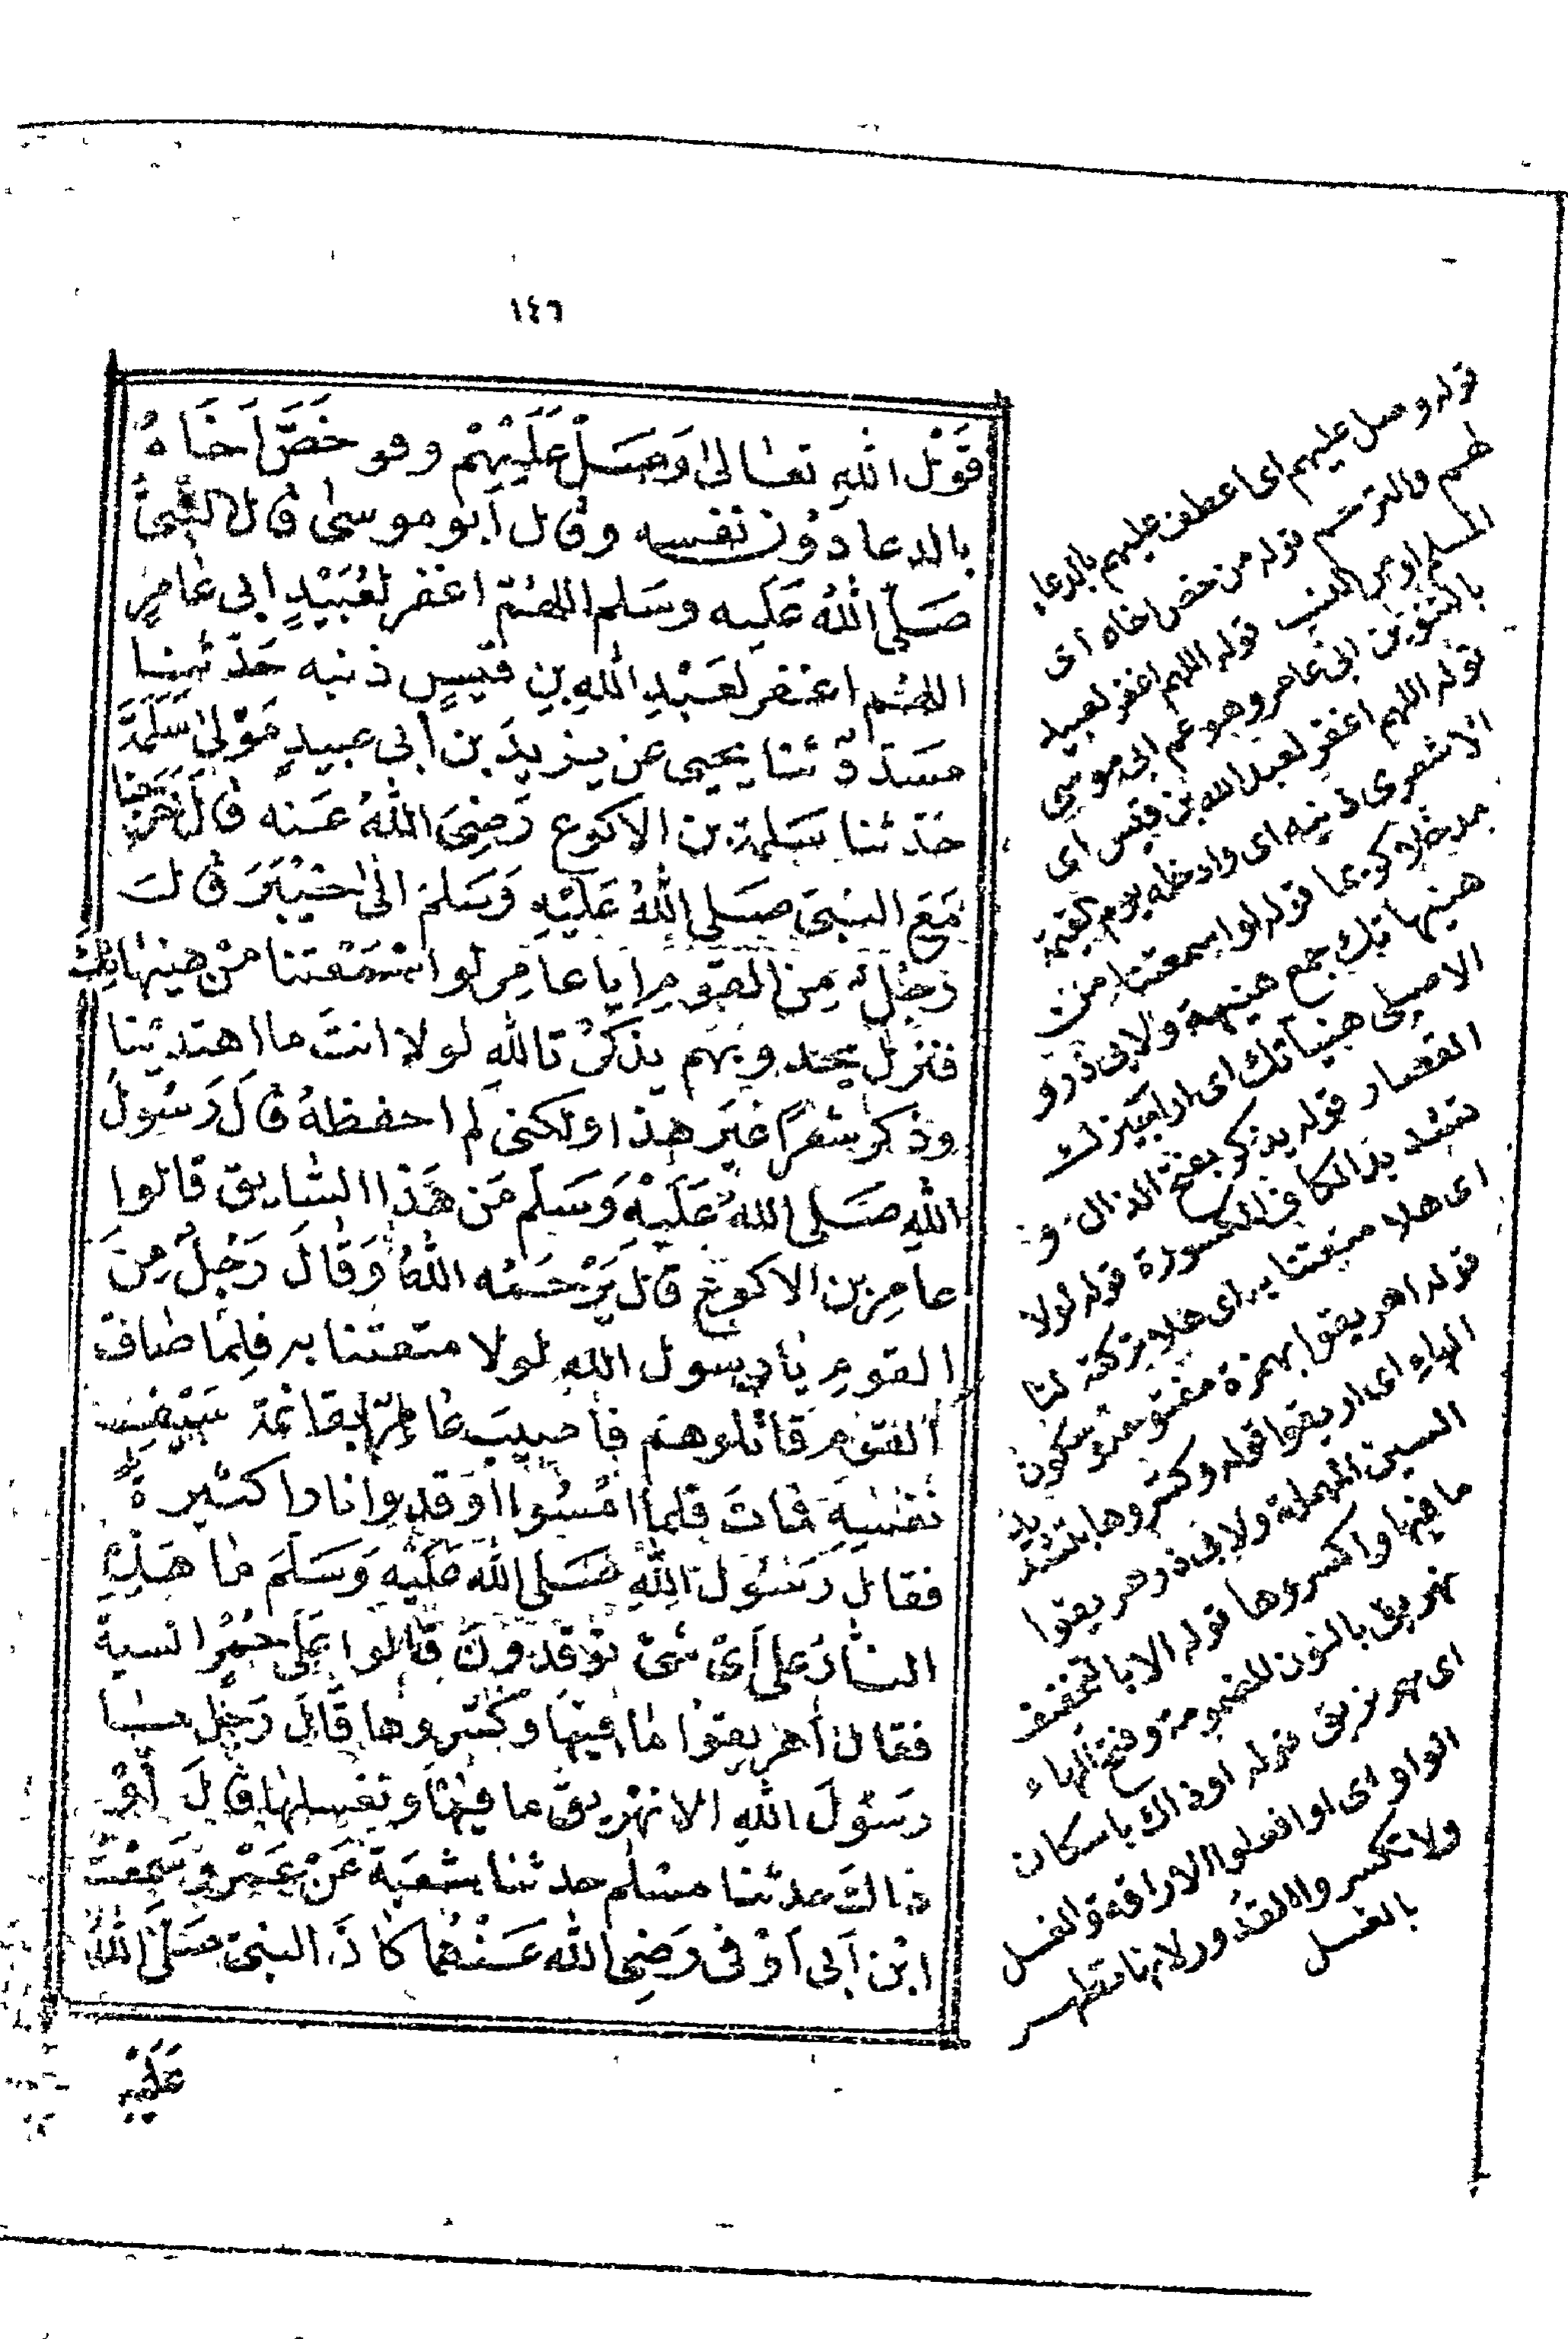 ١٤٦
قَوْل اللهِ تعالى وَصَلّ عَلَيْهِمْ وهو خَصَّ اَخَاهُ
بالدعا دُوْن نفسه وقال أبو موسى قال النَّبىُّ
صَلّى اللهُ عَلَيه وسَلم اللهُمّ اغفر لعُبَيْدٍ ابى عَامِرٍ
اللهُم اغفر لعَبْدِ اللهِ بنِ قَيسٍ ذنبه حَدّثنا
مسَدّدٌ ثنا يحيى عن يزيدَ بن أبى عبيدٍ مَوْلىٰ سَلَمَةَ
حَدّثنا سَلمة بن الاكوع رَضِىَ اللهُ عَنه قال خَرَجنا
مَعَ النبىّ صَلى اللهُ عَلَيْهِ وَسَلمَ الىٰ خَيْبَرَ قالَ
رَجُلٌ مِنَ القومِ ايا عامِر لو اسْمَعْتنا مِنْ هينهاتكَ
فنزلَ يحدو بهم يذكّرُ تالله لولا انتَ ما اهتدينا
وذكرَ شعرًا غيَر هذا ولكنى لم احفظهُ قالَ رَسُولُ
اللهِ صَلى اللهُ عَلَيْهِ وَسَلم مَن هَذا السَّايق قالوا
عامِر بن الاكوع قال يَرْحَمُه اللهُ وَقالَ رَجُلٌ مِنَ
القومِ يا رسول اللهِ لولا متعتنا به فلما صَافّ
القومَ قاتلوهم فأصيبَ عَامِرٌ بقائمة سَيْف
نفسِهِ فماتَ فلما امْسَوا اوقدوا نارا كثيرةً
فقال رَسُولُ اللهِ صَلى الله عَلَيهِ وَسَلمَ مَا هَذِهِ
النَّارُ على أىّ شىّ توقدونَ قالوا عَلَى حُمُرٍ انسية
فقال أهريقوا مَا فيها وكسّروها قالَ رَجُل يا
رَسُولَ اللهِ الا نهريق ما فيها ونغسلها قالَ أوْ
ذاكَ حدثنا مسْلم حدثنا شعبَة عَنْ عَمْرٍو سَمِعْتُ
ابْن أبى اَوْفى رَضِىَ الله عَنْهُما كانَ النبىّ صَلّى اللهُ
عَلَيْهِ
قوله وصل عليهم اى اعطف عليهم بالدعا
لهم والترحم قوله من خص اخاه اى
المسلم او من النسب قوله اللهم اغفر لعبيد
بالتنوين ابى عامر وهو عم ابى موسى
قوله اللهم اغفر لعبد الله بن قيس اى
الاشعرى ذنبه اى وادخله يوم القيمة
مدخلا كريما قوله لو اسمعتنا من
هنيهاتك جمع هنيهة ولابى ذر و
الاصيلى هنياتك اى اراجيزك
القصار قوله يذكر بفتح الذال و
تشديد الكاف المكسورة قوله لولا
اى هلا متعتنا به اى هلا تركته لنا
قوله اهريقوا بهمزة مفتوحة وسكون
الهاء اى اريقوا قوله وكسّروها بتشديد
السين المهملة ولابى ذر هريقوا
ما فيها واكسروها قوله الا بالتخفيف
نهريق بالنون المضمومة وفتح الهاء
اى نهريق قوله او ذاك باسكان
الواو اى او افعلوا الاراقة والغسل
ولا تكسروا القدور لانها تطهر
بالغسل